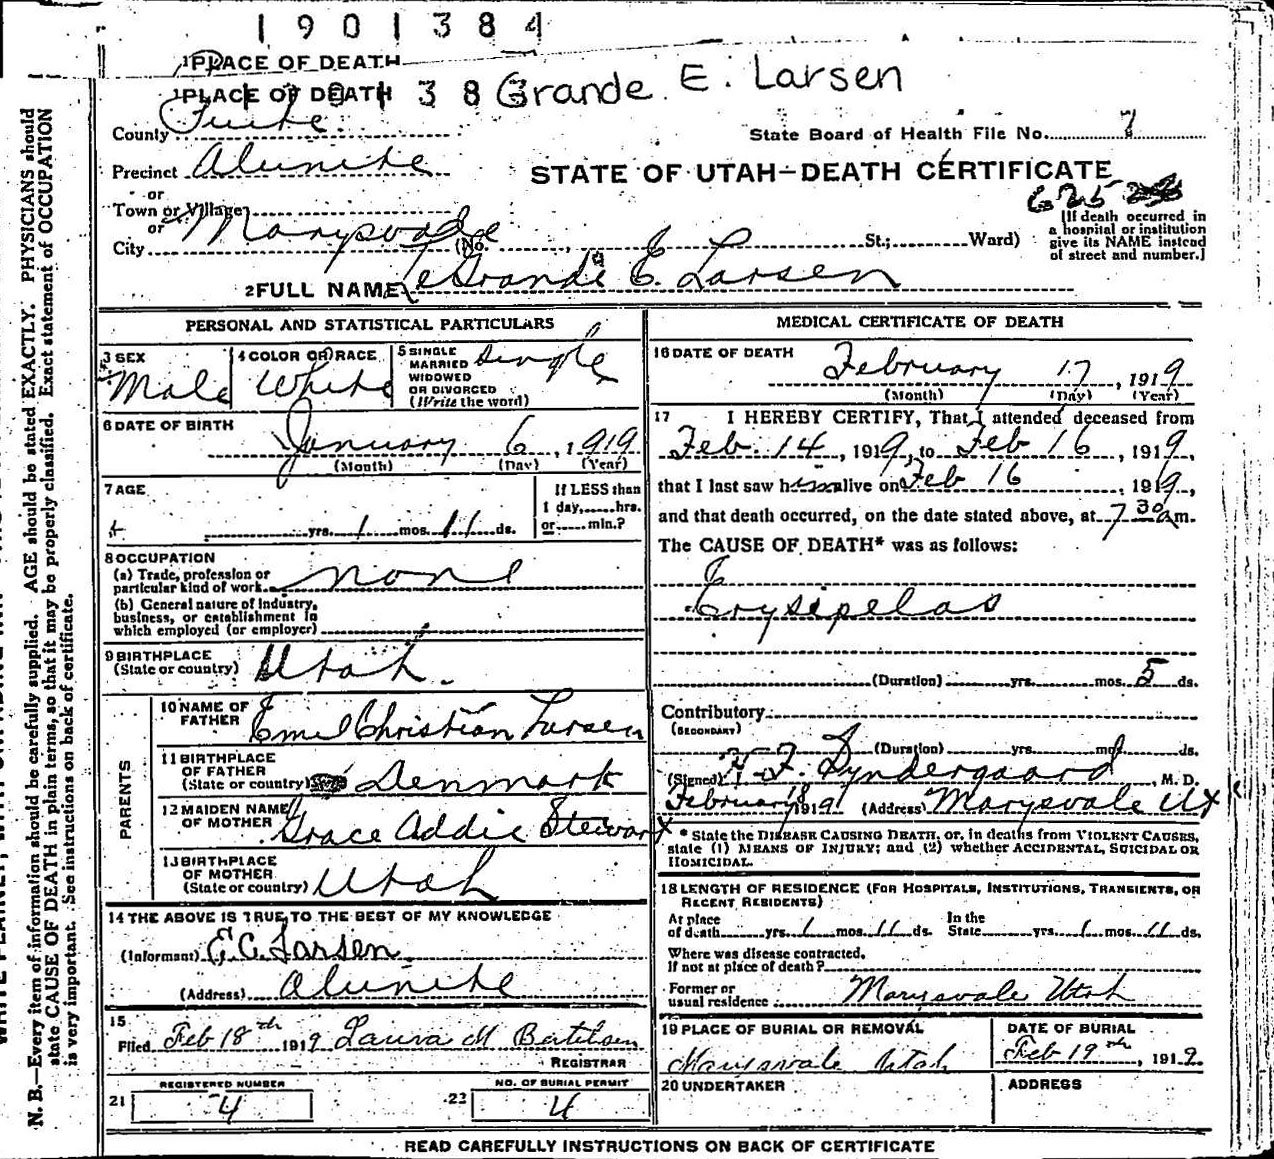 1901384
PLACE OF DEATH
1 PLACE OF DEATH 3 8 Grande E. Larsen
County Piute
State Board of Health File No. 7
Precinct Alunite
STATE OF UTAH—DEATH CERTIFICATE
or
625
Town or Village
or
City Marysvale (No. St.; Ward)
[If death occurred in
a hospital or institution
give its NAME instead
of street and number.]
2 FULL NAME Le Grande E. Larsen
PERSONAL AND STATISTICAL PARTICULARS
3 SEX
Male
4 COLOR OR RACE
White
5 SINGLE
MARRIED
WIDOWED
OR DIVORCED
(Write the word)
Single
6 DATE OF BIRTH
January 6, 1919
(Month) (Day) (Year)
7 AGE
yrs. 1 mos. 11 ds.
If LESS than
1 day,......hrs.
or......min.?
8 OCCUPATION
(a) Trade, profession or
particular kind of work none
(b) General nature of Industry,
business, or establishment in
which employed (or employer)
9 BIRTHPLACE
(State or country) Utah.
PARENTS
10 NAME OF
FATHER Emel Christian Larsen
11 BIRTHPLACE
OF FATHER
(State or country) Denmark
12 MAIDEN NAME
OF MOTHER Grace Addie Stewart
13 BIRTHPLACE
OF MOTHER
(State or country) Utah
14 THE ABOVE IS TRUE TO THE BEST OF MY KNOWLEDGE
(Informant) E.C. Larsen.
(Address) Alunite
15
Filed Feb 18th 1919 Laura M Bertelsen
REGISTRAR
REGISTERED NUMBER
21 4
NO. OF BURIAL PERMIT
22 4
MEDICAL CERTIFICATE OF DEATH
16 DATE OF DEATH
February 17, 1919
(Month) (Day) (Year)
17 I HEREBY CERTIFY, That I attended deceased from
Feb. 14, 1919, to Feb 16, 1919,
that I last saw him alive on Feb 16, 1919,
and that death occurred, on the date stated above, at 7 30 a m.
The CAUSE OF DEATH* was as follows:
Erysipelas
(Duration) yrs. mos. 5 ds.
Contributory
(SECONDARY)
(Duration) yrs. mos. ds.
(Signed) Dyndergaard, M. D.
February 18 1919 (Address) Marysvale Ut
* State the DISEASE CAUSING DEATH, or, in deaths from VIOLENT CAUSES,
state (1) MEANS OF INJURY; and (2) whether ACCIDENTAL, SUICIDAL OR
HOMICIDAL.
18 LENGTH OF RESIDENCE (FOR HOSPITALS, INSTITUTIONS, TRANSIENTS, OR
RECENT RESIDENTS)
At place
of death yrs. 1 mos. 11 ds.
In the
State yrs. 1 mos. 11 ds.
Where was disease contracted,
If not at place of death?
Former or
usual residence Marysvale Utah
19 PLACE OF BURIAL OR REMOVAL
Marysvale Utah
DATE OF BURIAL
Feb 19th, 1919
20 UNDERTAKER
ADDRESS
READ CAREFULLY INSTRUCTIONS ON BACK OF CERTIFICATE
N. B.—Every item of information should be carefully supplied. AGE should be stated EXACTLY. PHYSICIANS should
state CAUSE OF DEATH in plain terms, so that it may be properly classified. Exact statement of OCCUPATION
is very important. See instructions on back of certificate.